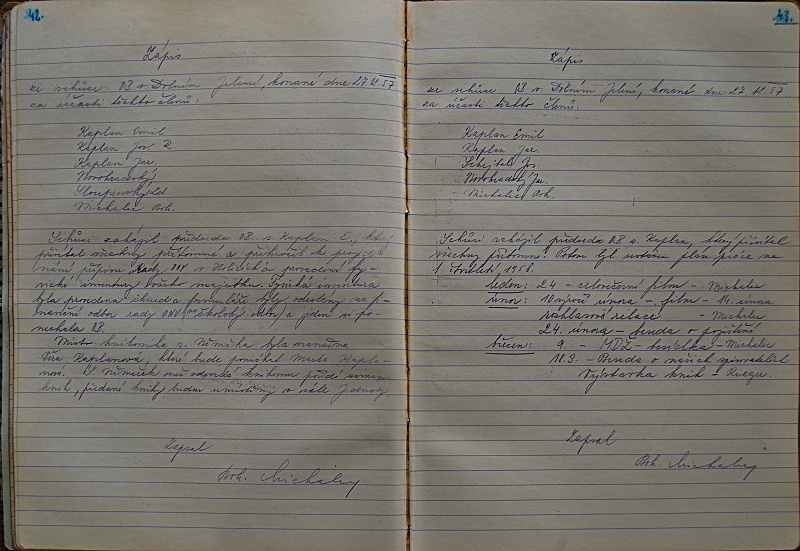 42.
Zápis
ze schůze OB v Dolním Jelení, konané dne 27.
za účasti těchto členů:
Kaplan Emil
Kaplan Jos.
Kaplan Jar.
Novohradský
Sloupenský
Michalec Boh.
Schůzi zahájil předseda OB s. Kaplan E., kte
přivítal všechny přítomné a přikročil k
nání přípisu rady ONV v Holicích a provedení fy-
sické inventury všeho majetku. Fysická inventura
byla provedena ihned a formuláře byly odeslány na
odbor rady ONV a jeden si po-
nechala OB.
Místo knihovníka s. Němečka byla
Věra Kaplanová, které bude pomáhat Kapla-
nová. Němeček než odevzdá knihovnu
knih, předané knihy budou umístěny v sále Jednoty.
Zapsal
Boh. Michalec
43.
Zápis
ze schůze OB v Dolním Jelení, konané dne 27.
za účasti těchto členů:
Kaplan Emil
Kaplan Jar.
Jos.
Novohradský Jar.
Michalec Boh.
Schůzi zahájil předseda OB s. Kaplan, který přivítal
všechny přítomné. Potom byl sestaven plán práce na
1. čtvrtletí 1958.
leden: 24 - celovečerní film - Michalec
únor: 10 výročí února - film - 14. února
rozhlasové relace - Michalec
24. února - beseda o pojištění
březen: 9. - MDŽ - besídka - Michalec
18.3. - Beseda o našich
Výstavka knih - Rieger.
Zapsal
Boh. Michalec